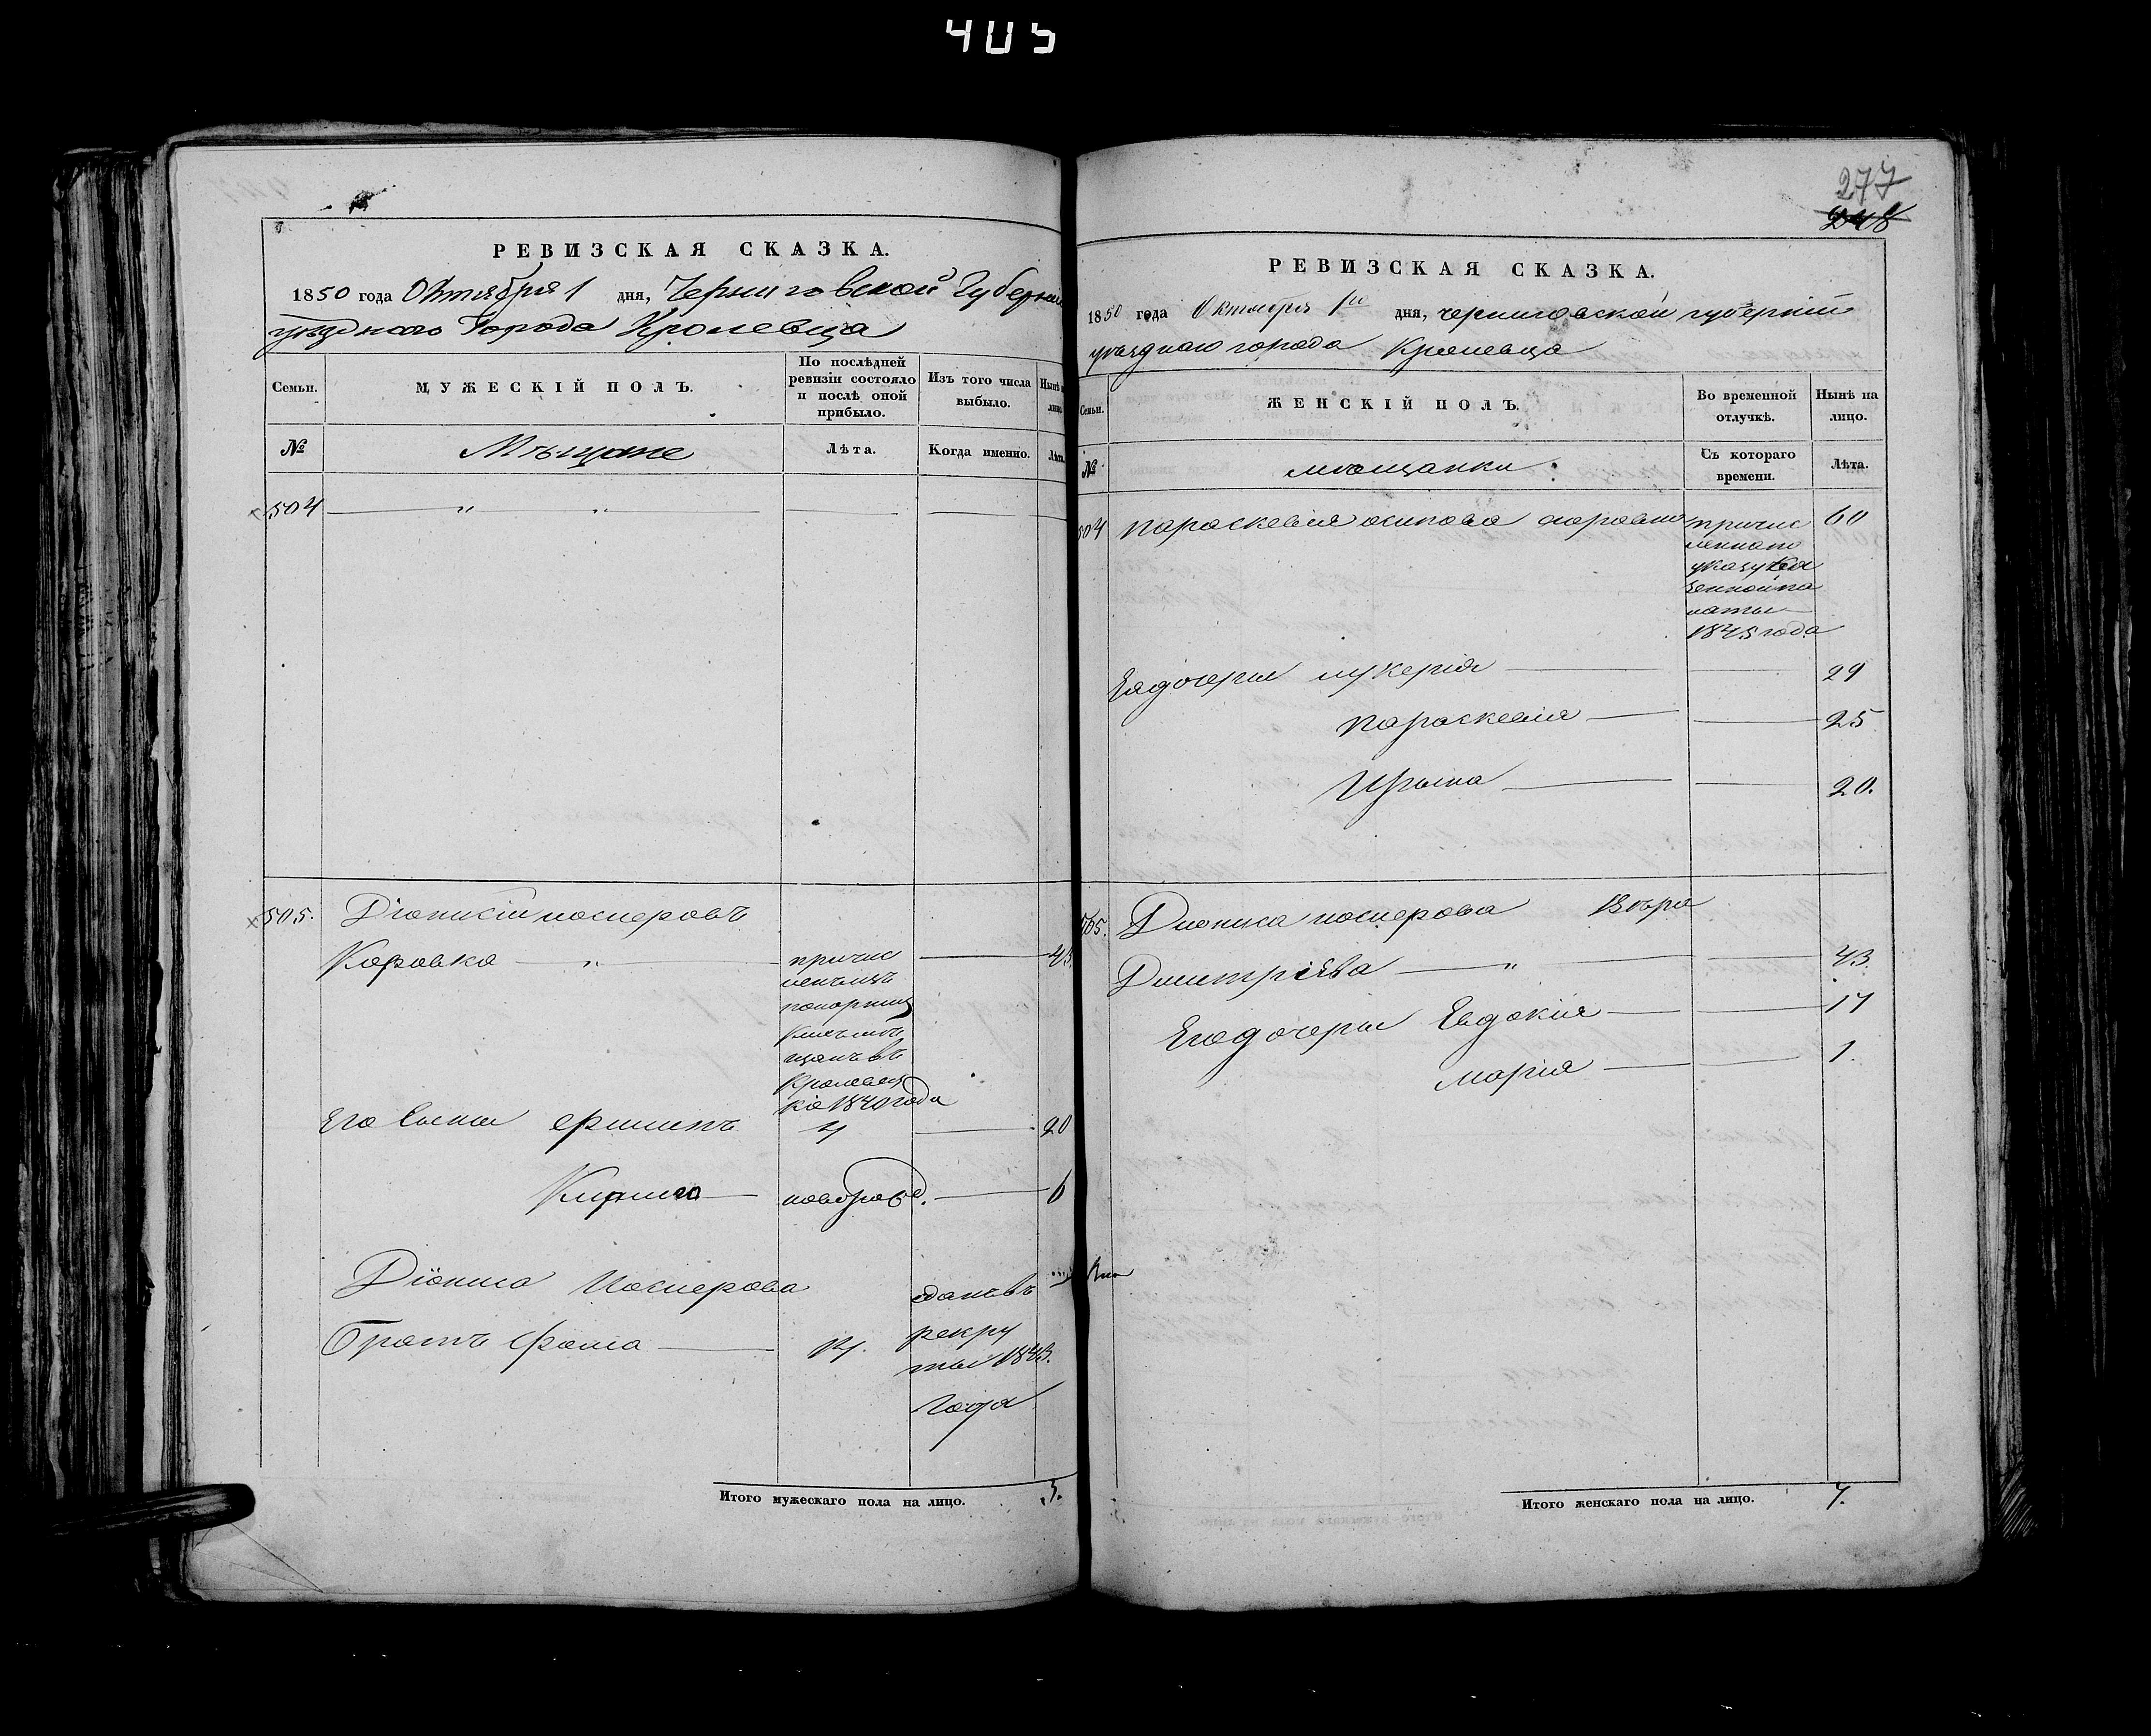 405
РЕВИЗСКАЯ СКАЗКА.
1850 года Октября 1 дня, Черниговской Губернии
уѣзднаго Города Кролевца
Семьи.
МУЖЕСКІЙ ПОЛЪ.
По послѣдней
ревизіи состояло
и послѣ оной
прибыло.
Изъ того числа
выбыло.
Нынѣ
лицо
№
Мѣщане
Лѣта.
Когда именно.
Лѣта.
504
505.
Діонисій
Коровка
причис
1840 года
45
Его Сыны
20
Кирило
новорожд.
6
Братъ Фома
14.
рекру
ты 1843.
года
Итого мужескаго пола на лицо.
3.
277
248
РЕВИЗСКАЯ СКАЗКА.
1850 года Октября 1го дня, черниговской губерніи
уѣзднаго города Кролевца
Семьи.
ЖЕНСКІЙ ПОЛЪ.
Во временной
отлучкѣ.
Нынѣ на
лицо.
№
мѣщанки
Съ котораго
времени.
Лѣта.
504
параскевія осипова
причис
60
указу Ка
зенной па
латы
1845 года
Ея дочери лукерія
29
параскевія
25
Ирына
20.
505.
Вѣра
Дмитріева
43.
Его дочери Евдокія
17
марія
1.
Итого женскаго пола на лицо.
7.